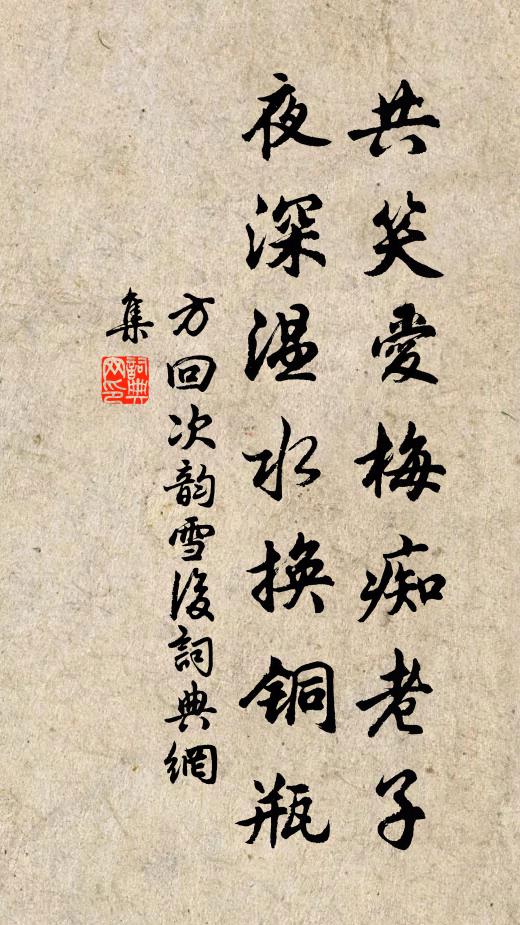 共笑愛梅痴老子
夜深温水換銅瓶
方回次韵雪後詞典網
集
詞典
网印